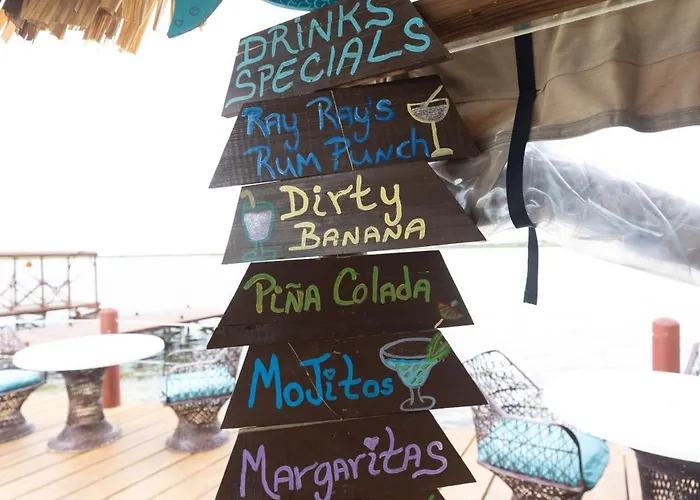 DRINKS
SPECIALS
RAY RAY'S
RUM PUNCH
DiRTy
BANANA
PiÑA COLADA
MOJitos
MARGARitAS